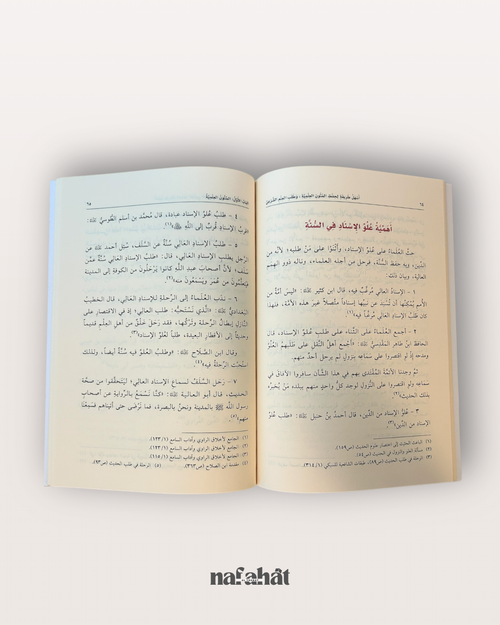 ٦٤
أسهل طريقة لحفظ المتون العلمية، وطلب العلم الشرعي
أَهَمِّيَّةُ عُلُوِّ الإِسْنَادِ فِي السُّنَّةِ
حثَّ العُلماءُ على عُلوِّ الإسناد، وأثنَوْا على مَنْ طلبه؛ لأنه من
الدِّين، وبه حفظ السُّنَّة، فرحل مِن أجله العلماء، وناله ذوو الهِمَم
العالية، وبيان ذلك:
١ - الإسناد العالي مُرغَّب فيه، قال ابن كثير ﵀: «ليس أمة من
الأمم يُمْكِنُها أن تُسْنِد عن نبيِّها إسناداً متَّصلاً غير هذه الأمَّة، فلهذا
كان طلبُ الإسنادِ العالي مُرغَّباً فيه»(١).
٢ - أجمع العلماءُ على الثناء على طلب علوِّ الإسناد، قال
الحافظ ابن طاهر المقدسيُّ ﵀: «أجمع أهلُ النَّقل على طلبهم العُلُوَّ
ومدحه إذ لو اقتصروا على سَماعِه بنزولٍ لم يرحل أحدٌ منهم.
ثُمَّ وجدنا الأئمَّة المُقْتدى بهم في هذا الشَّأن سافروا الآفاق في
سَماعه ولو اقتصروا على النُّزول لوجد كلُّ واحدٍ منهم ببلده مَنْ يُخبِرُه
بذلك الحديث»(٢).
٣ - عُلوُّ الإسناد مِن الدِّين، قال أحمدُ بنُ حنبل ﵀: «طلب عُلُوِّ
الإسناد من الدِّين»(٣).
(١) الباعث الحثيث إلى اختصار علوم الحديث (ص١٥٩).
(٢) مسألة العلو والنزول في الحديث (ص٥٤).
(٣) الرحلة في طلب الحديث (ص٨٩)، طبقات الشافعية للسبكي (٣١٤/١).
الباب الأول: المتون العلمية
٦٥
٤ - طلبُ عُلُوِّ الإسناد عبادة، قال محمَّد بن أسلم الطُّوسيُّ ﵀:
«قربُ الإسنادِ قُربٌ إلى اللَّهِ ﷿»(١).
٥ - طلبُ الإسنادِ العالي سُنَّةٌ عن السَّلف، سُئل أحمد ﵀ عن
الرَّجل يطلب الإسناد العالي، قال: «طلبُ الإسناد العالي سُنَّةٌ عمَّن
سلف؛ لأنَّ أصحابَ عبدِ اللَّهِ كانوا يَرْحَلُون من الكوفةِ إلى المدينة
فيتعلَّمون من عُمر ويَسْمعُون منه»(٢).
٦ - ندب العُلماءُ إلى الرِّحلة للإسناد العالي، قال الخطيب
البغداديُّ ﵀: «الَّذي نستحبُّه: طلب العالي؛ إذ في الاقتصار على
النَّازل إبطالُ الرِّحلة وتَرْكُها، فقد رَحَلَ خَلْقٌ من أهلِ العِلم قديماً
وحديثاً إلى الأقطار البعيدة، طلباً لعلوِّ الإسناد»(٣).
وقال ابن الصَّلاح ﵀: «وطلبُ العُلوِّ فيه سُنَّةٌ أيضاً، ولذلك
استُحبَّت الرِّحلة فيه»(٤).
٧ - رحل السَّلفُ لسماع الإسناد العالي؛ ليتحقَّقوا من صحَّة
الحديث، قال أبو العالية ﵀: «كنَّا نَسْمَعُ بالرِّواية عن أصحاب
رسول اللَّه ﷺ بالمدينة ونحنُ بالبصرة، فما نرْضى حتى أتيناهم فسَمِعْنا
منهم»(٥).
(١) الجامع لأخلاق الراوي وآداب السامع (١٢٣/١).
(٢) الجامع لأخلاق الراوي وآداب السامع (١٢٣/١).
(٣) الجامع لأخلاق الراوي وآداب السامع (١١٥/١).
(٤) مقدمة ابن الصلاح (ص٣٦٣).
(٥) الرحلة في طلب الحديث (ص٩٣).
nafahāt